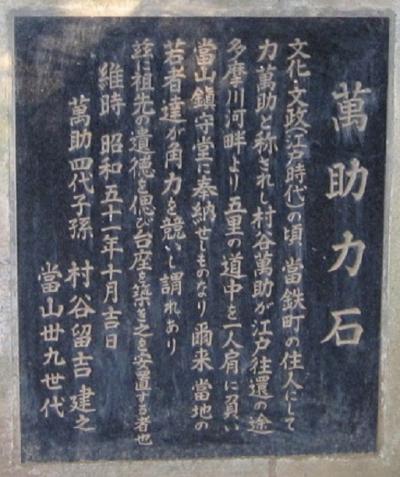 萬助力石
文化・文政(江戸時代)の頃、當鉄町の住人にして
力萬助と称されし村谷萬助が江戸往還の途
多摩川河畔より五里の道中を一人肩に負い
當山鎮守堂に奉納せしものなり爾来當地の
若者達が角力を競いし謂れあり
茲に祖先の遺徳を偲び台座を築き之を安置する者也
維時 昭和五十一年十月吉日
萬助四代子孫 村谷留吉建之
當山丗九世代